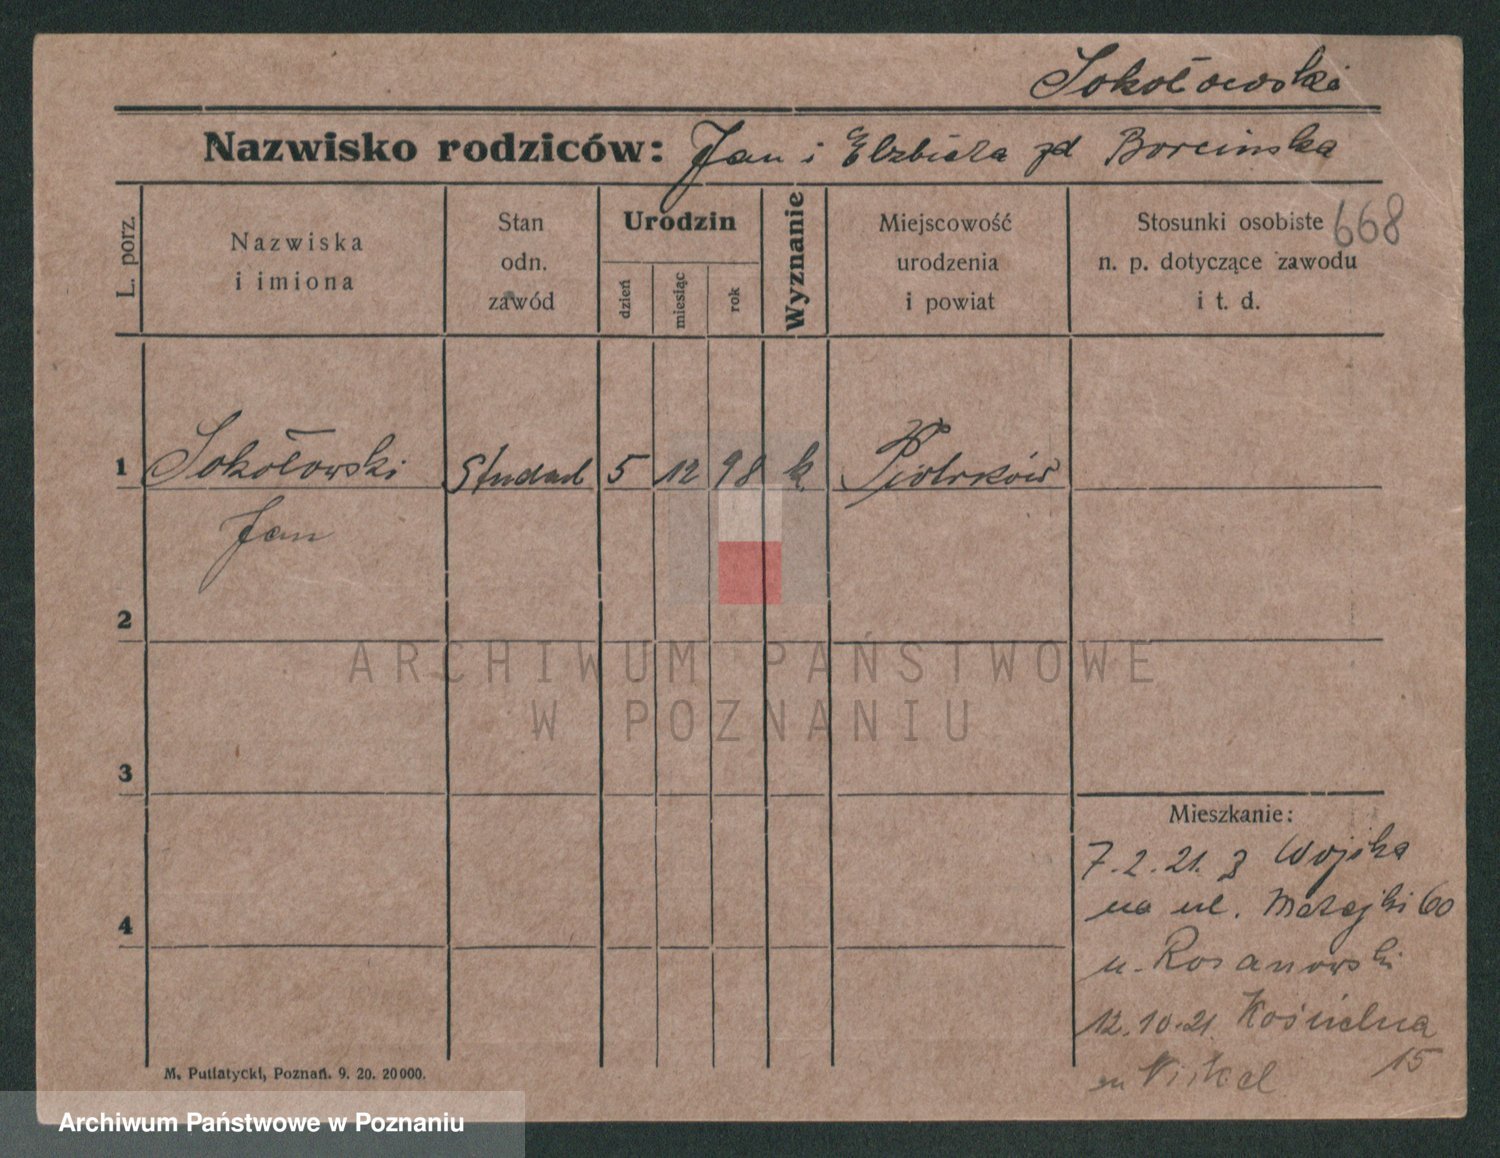 Sokołowski
Nazwisko rodziców: Jan i Elzbieta zd Borcinska
L. porz.
Nazwiska
i imiona
Stan
odn.
zawód
Urodzin
dzień
miesiąc
rok
Wyznanie
Miejscowość
urodzenia
i powiat
Stosunki osobiste
n. p. dotyczące zawodu
i t. d.
668
1 Sokołowski Student 5 12 98 k. Piotrków
Jan
2
3
4
Mieszkanie:
7.2.21. z Wojska
na ul. Matejki 60
u. Rosanowski
12.10.21. Kościelna
15
M. Putiatycki, Poznań. 9. 20. 20000.
ARCHIWUM PAŃSTWOWE
W POZNANIU
Archiwum Państwowe w Poznaniu